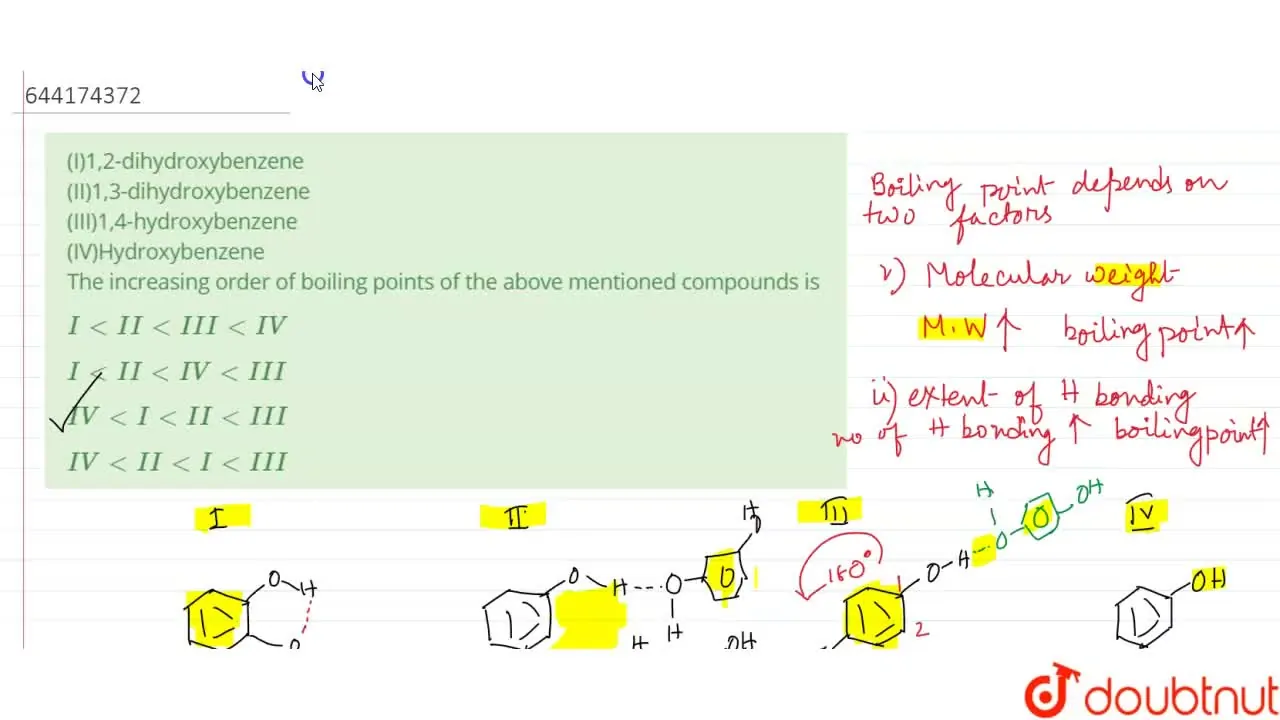 644174372
(I)1,2-dihydroxybenzene
(II)1,3-dihydroxybenzene
(III)1,4-hydroxybenzene
(IV)Hydroxybenzene
The increasing order of boiling points of the above mentioned compounds is
I < II < III < IV
I < II < IV < III
IV < I < II < III
IV < II < I < III
Boiling point depends on
two factors
Molecular weight
M.W ↑ boiling point ↑
ii) extent of H bonding
no of H bonding ↑ boiling point ↑
I II III IV
O H
O
O H O H
H
H OH
180°
1
2
O H O H
OH
OH
doubtnut